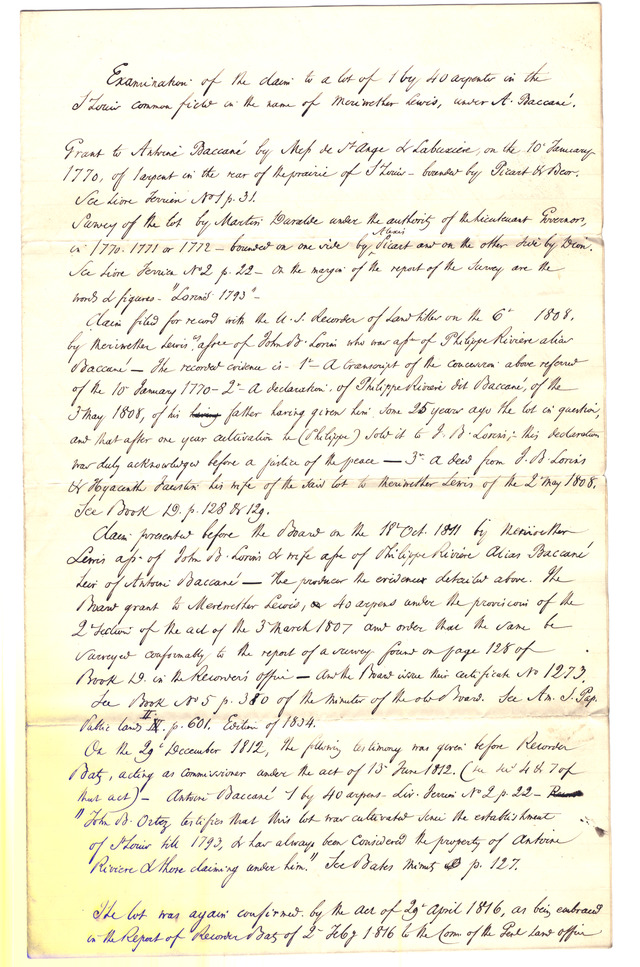 Examination of the claim to a lot of 1 by 40 arpents in the
St Louis common field in the name of Meriwether Lewis, under A. Baccané.
Grant to Antoine Baccané by Mess de St Ange & Labuxiere, on the 10 January
1770, of 1 arpent in the rear of the prairie of St Louis - bounded by Picart & Beor.
See Livre Terrien No 1 p. 31.
Survey of the lot by Martin Duralde under the authority of the Lieutenant Governors,
in 1770. 1771 or 1772 - bounded on one side by Alexis Picart and on the other side by Dion.
See Livre Terrien No 2 p. 22 - on the margin of the report of the survey are the
words & figures - "Lorins 1793" -
Claim filed for record with the U. S. Recorder of Land titles on the 6th 1808.
by Meriwether Lewis "assee of John B. Lorin who was asse of Philippe Riviere alias
Baccané - The recorded evidence is - 1st - A transcript of the concession above referred
of the 10 January 1770 - 2d - A declaration of Philippe Riviere dit Baccané, of the
3 May 1808, of his having father having given him some 25 years ago the lot in question,
and that after one year cultivation he (Philippe) sold it to J. B. Lorins; - this declaration
was duly acknowledged before a justice of the peace - 3d - a deed from J. B. Lorins
& Hyacinth Faustin his wife of the said lot to Meriwether Lewis of the 2d May 1808.
See Book D. p. 128 & 129.
Claim presented before the Board on the 18th Oct. 1811 by Meriwether
Lewis asse of John B. Lorins & wife asse of Philippe Riviere alias Baccané
heir of Antoine Baccané - He produces the evidence detailed above. The
Board grant to Meriwether Lewis, 40 arpens under the provisions of the
2d Section of the act of the 3d March 1807 and order that the same be
surveyed conformably to the report of a survey found on page 128 of
Book D. in the Recorder's office - And the Board issue their certificate No 1273.
See Book No 5 p. 380 of the minutes of the old Board. See Am. S. Pap.
Public lands II p. 601. Edition of 1834.
On the 29th December 1812, the following testimony was given before Recorder
Bates, acting as commissioner under the act of 13 June 1812. (see sec 4 & 7 of
that act) - Antoine Baccané 1 by 40 arpens - Liv. Terrien No 2 p. 22 -
"John B. Ortez, testifies that this lot was cultivated since the establishment
of St Louis till 1793, & has always been considered the property of Antoine
Riviere & those claiming under him." See Bates minutes p. 127.
The lot was again confirmed by the act of 29th April 1816, as being embraced
in the Report of Recorder Bates of 2d Feby 1816 to the Com of the Genl Land office